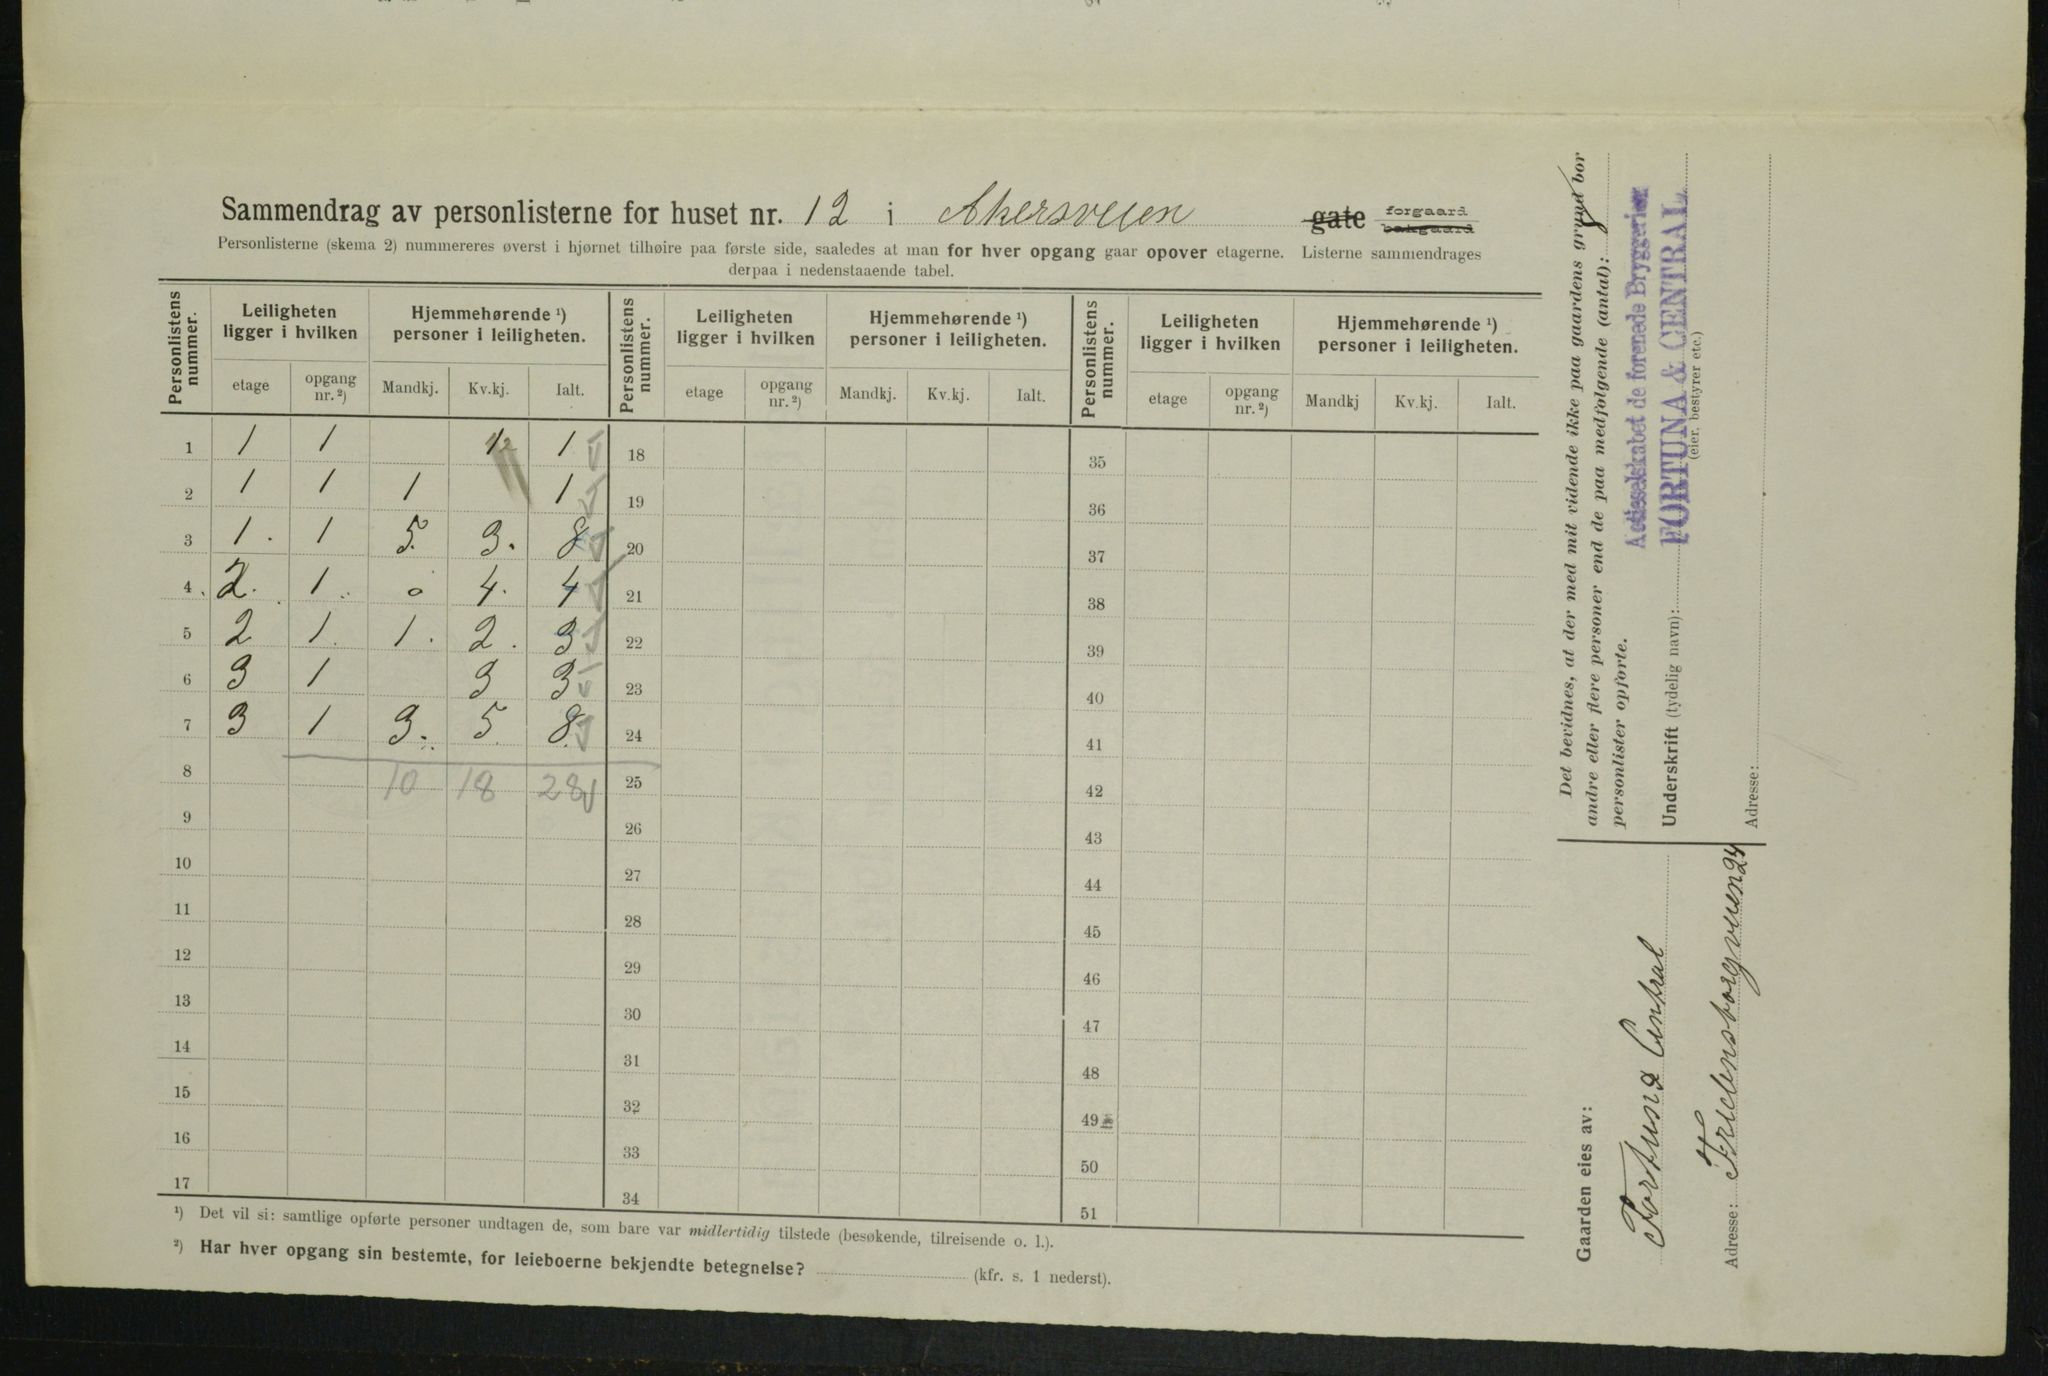 Sammendrag av personlisterne for huset nr. 12 i Akersveien gate forgaard bakgaard
Personlisterne (skema 2) nummereres øverst i hjørnet tilhøire paa første side, saaledes at man for hver opgang gaar opover etagerne. Listerne sammendrages
derpaa i nedenstaaende tabel.
Personlistens nummer. Leiligheten ligger i hvilken Hjemmehørende ¹) personer i leiligheten. Personlistens nummer. Leiligheten ligger i hvilken Hjemmehørende ¹) personer i leiligheten. Personlistens nummer. Leiligheten ligger i hvilken Hjemmehørende ¹) personer i leiligheten.
etage opgang nr. ²) Mandkj. Kv.kj. Ialt. etage opgang nr. ²) Mandkj. Kv.kj. Ialt. etage opgang nr. ²) Mandkj Kv.kj. Ialt.
1 1 1 1 1 18 35
2 1 1 1 1 19 36
3 1. 1 5. 3. 8 20 37
4. 2. 1. 0 4. 4 21 38
5 2 1. 1. 2. 3 22 39
6 3 1 3 3 23 40
7 3 1 3. 5 8 24 41
8 10 18 28 25 42
9 26 43
10 27 44
11 28 45
12 29 46
13 30 47
14 31 48
15 32 49
16 33 50
17 34 51
¹) Det vil si: samtlige opførte personer undtagen de, som bare var midlertidig tilstede (besøkende, tilreisende o. l.).
²) Har hver opgang sin bestemte, for leieboerne bekjendte betegnelse? (kfr. s. 1 nederst).
Det bevidnes, at der med mit vidende ikke paa gaardens grund bor
andre eller flere personer end de paa medfølgende (antal):
personlister opførte.
Actieselskabet de forenede Bryggerier
Underskrift (tydelig navn): FORTUNA & CENTRAL
(eier, bestyrer etc.)
Adresse:
Gaarden eies av:
Fortuna & Central
Adresse: Fredensborgveien 24